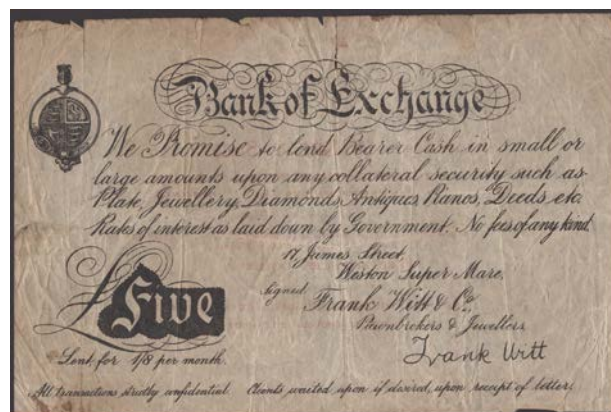 Bank of Exchange
We Promise to lend Bearer Cash in small or
large amounts upon any collateral security such as
Plate, Jewellery, Diamonds, Antiques, Pianos, Deeds etc.
Rates of interest as laid down by Government. No fees of any kind.
17, James Street,
Weston Super Mare.
Signed Frank Witt & Co.,
Pawnbrokers & Jewellers.
£Five
Frank Witt
Lent for 1/8 per month.
All transactions strictly confidential. Clients waited upon if desired, upon receipt of letter.